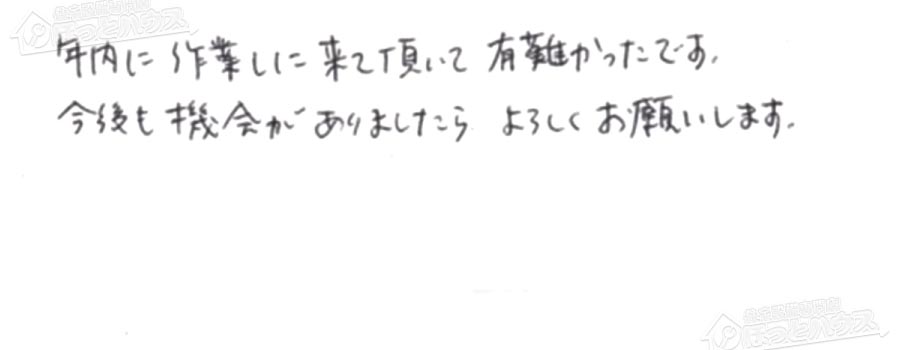 年内に作業しに来て頂いて有難かったです.
今後も機会がありましたらよろしくお願いします.
ほっとハウス
ほっとハウス